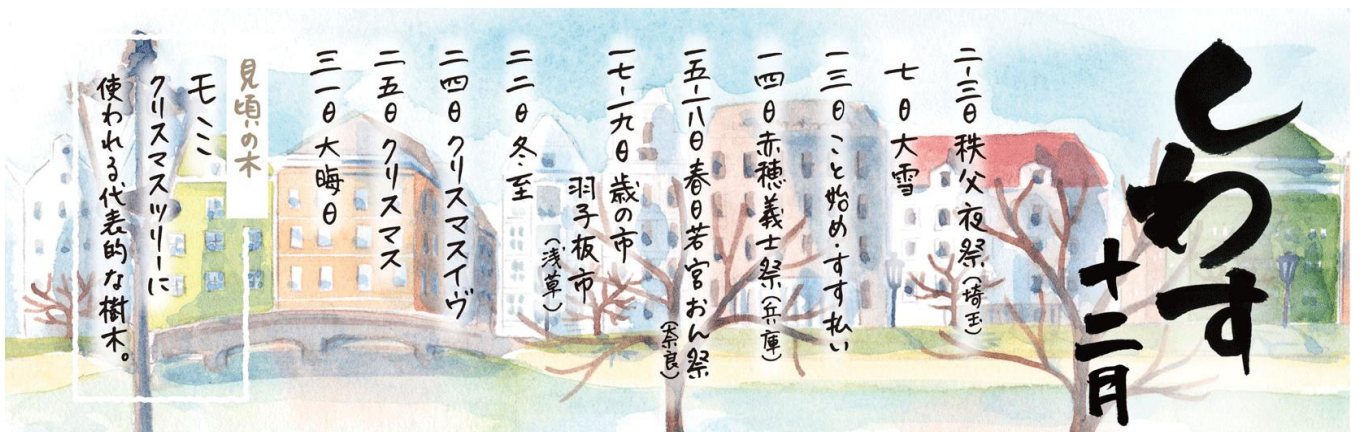 しわす
十二月
二-三日 秩父夜祭(埼玉)
七日 大雪
一三日 こと始め・すす払い
一四日 赤穂義士祭(兵庫)
一五-一八日 春日若宮おん祭(奈良)
一七-一九日 歳の市
羽子板市(浅草)
二二日 冬至
二四日 クリスマスイヴ
二五日 クリスマス
三一日 大晦日
見頃の木
モミ
クリスマスツリーに
使われる代表的な樹木。